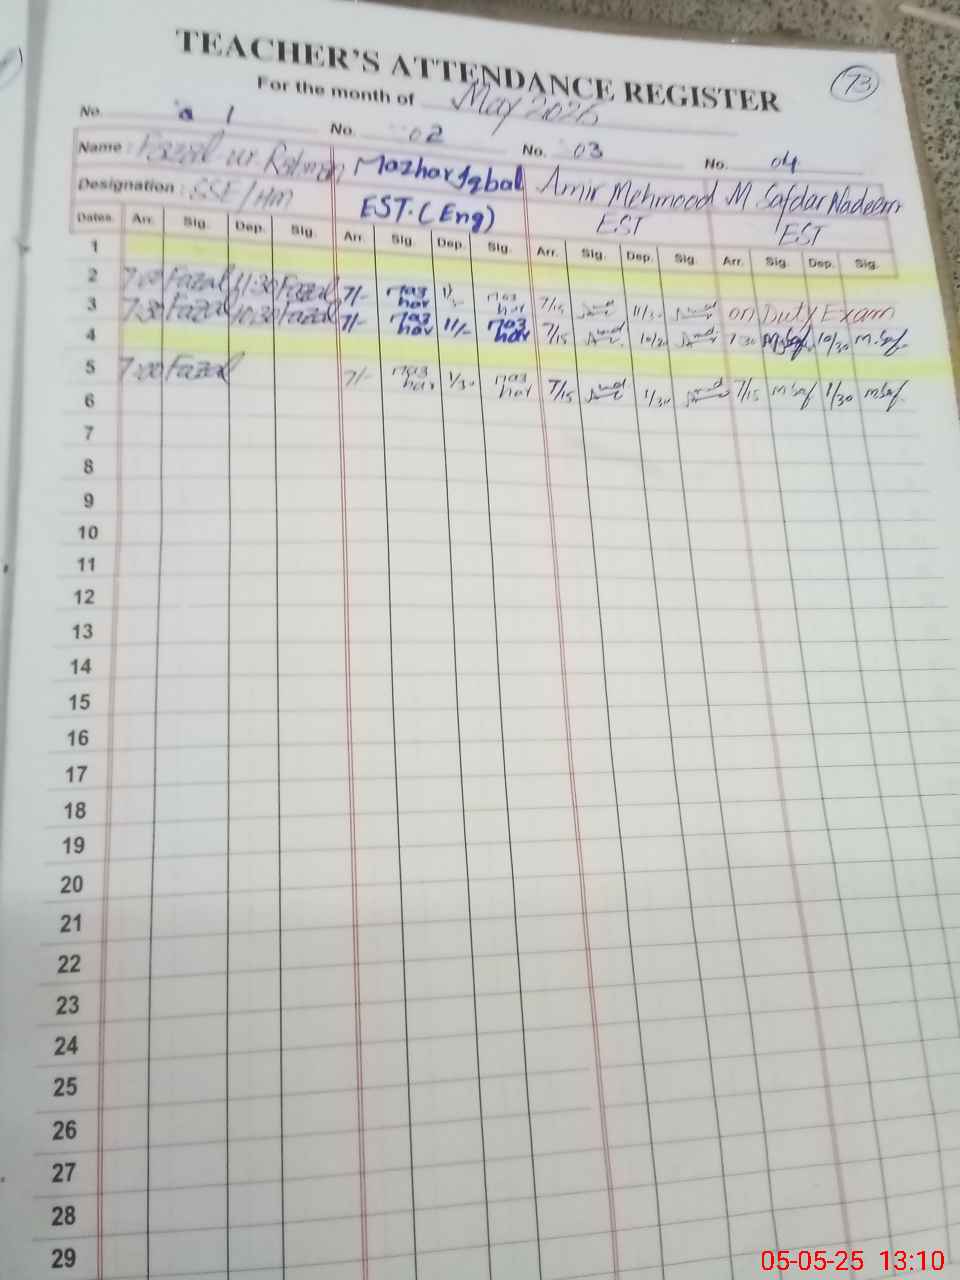 73
TEACHER'S ATTENDANCE REGISTER
For the month of May 2025
No. 01 No. 02 No. 03 No. 04
Name : Fazal ur Rehman Mazhar Iqbal Amir Mehmood M Safdar Nadeem
Designation : SSE/HM EST. (Eng) EST EST
Dates Arr. Sig. Dep. Sig. Arr. Sig. Dep. Sig. Arr. Sig. Dep. Sig. Arr. Sig. Dep. Sig.
1
2 7:00 Fazal 11:30 Fazal 7/- maz har maz har 7/15 11/30 on Duty Exam
3 7:30 Fazal 10:30 Fazal 7/- maz har 11/- maz har 7/15 7 30 M.Saf 10/30 M.Saf
4
5 7:00 Fazal 7/- maz har 1/30 maz har 7/15 1/30 7/15 M Saf 1/30 M Saf
6
7
8
9
10
11
12
13
14
15
16
17
18
19
20
21
22
23
24
25
26
27
28
29
05-05-25 13:10